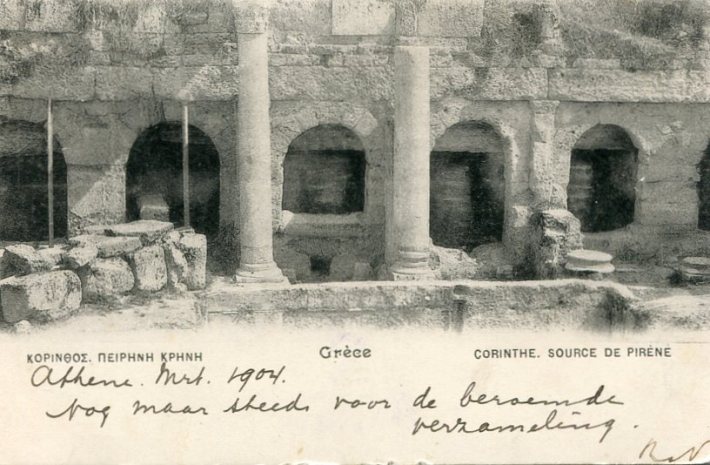 ΚΟΡΙΝΘΟΣ. ΠΕΙΡΗΝΗ ΚΡΗΝΗ
Grèce
CORINTHE. SOURCE DE PIRÈNE
Athene. Mrt. 1904.
Nog maar steeds voor de beroemde
verzameling.